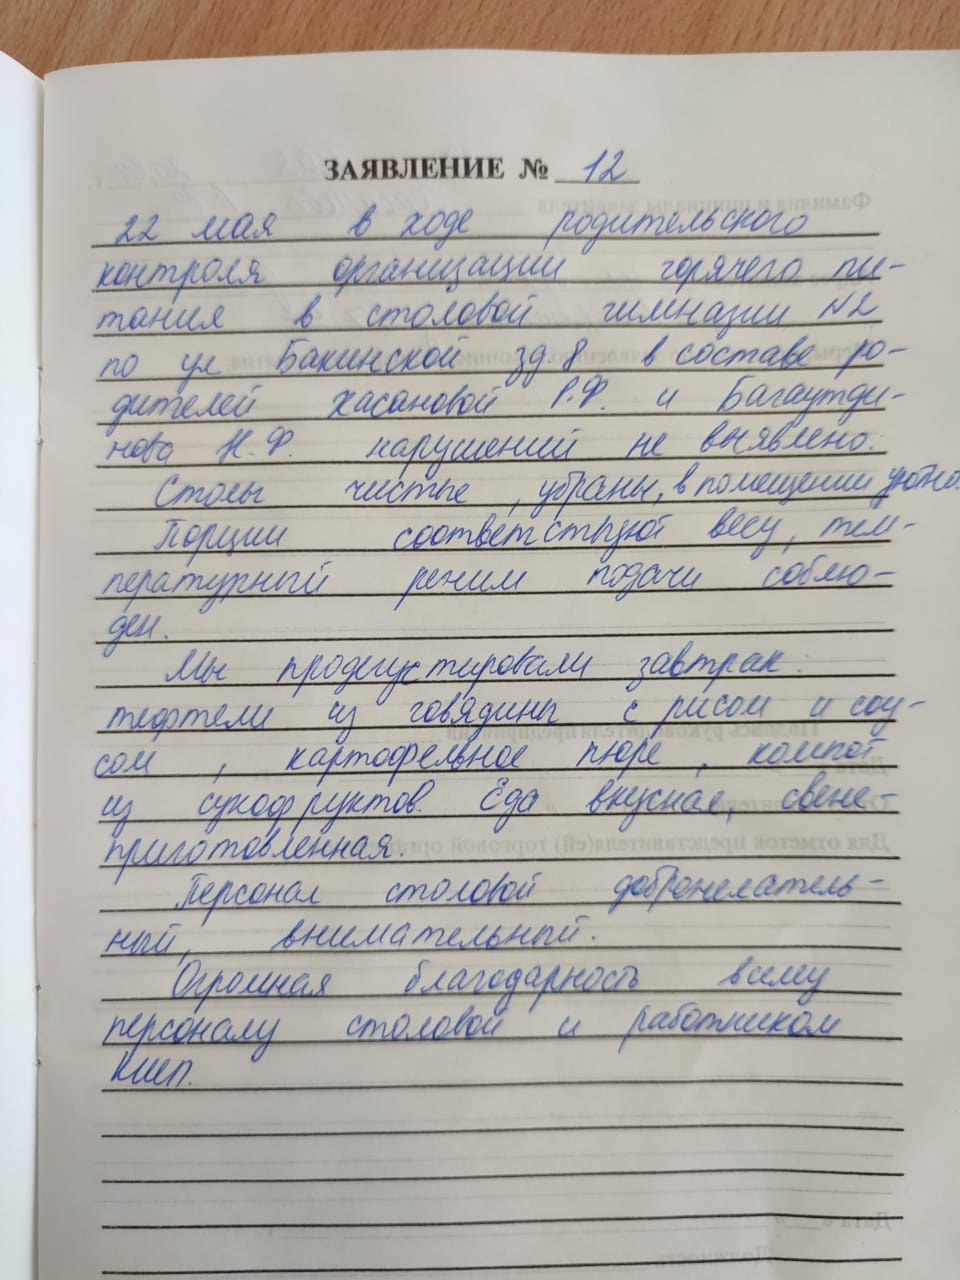 ЗАЯВЛЕНИЕ № 12
22 мая в ходе родительского
контроля организации горячего пи-
тания в столовой гимназии N2
по ул Бакинской зд.8 в составе ро-
дителей Хасановой Р.Ф. и Багаутди-
нова Н.Ф. нарушений не выявлено.
Столы чистые, убраны, в помещении уютно.
Порции соответствуют весу, тем-
пературный режим подачи соблю-
ден.
Мы продегустировали завтрак:
тефтели из говядины с рисом и соу-
сом, картофельное пюре, компот
из сухофруктов. Еда вкусная, свеже-
приготовленная.
Персонал столовой доброжелатель-
ный, внимательный.
Огромная благодарность всему
персоналу столовой и работником